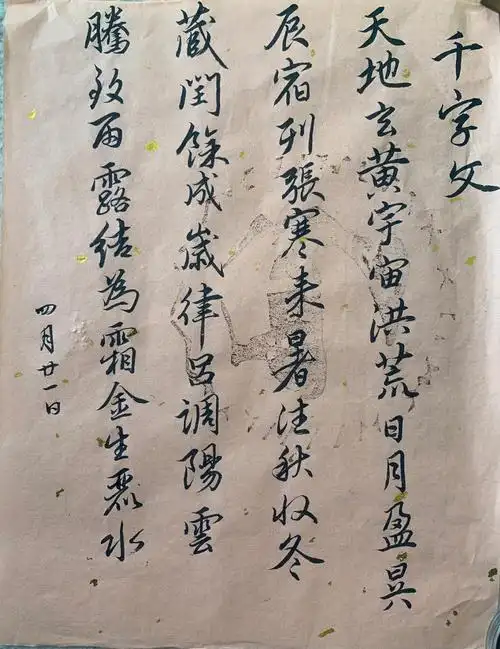 千字文
天地玄黄宇宙洪荒日月盈昃
辰宿列張寒来暑往秋收冬
藏閏餘成歲律呂調陽雲
騰致雨露結為霜金生麗水
四月廿一日